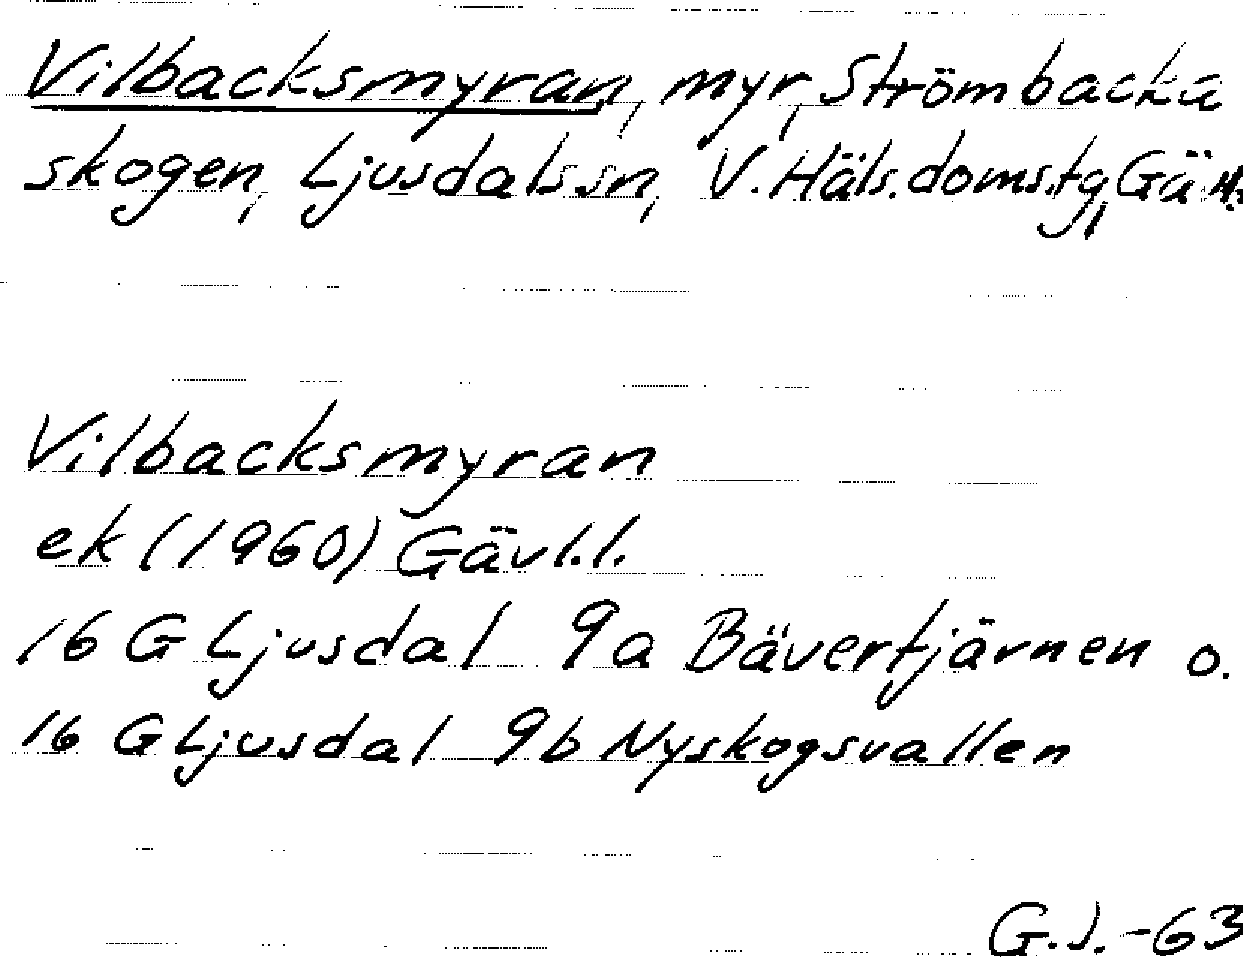 Vilbacksmyran, myr, Strömbacka
skogen, Ljusdals sn, V. Häls. doms.tg,
Vilbacksmyran
ek (1960) Gävl.l.
16 G Ljusdal 9a Bävertjärnen o.
16 G Ljusdal 9b Nyskogsvallen
G.J.-63